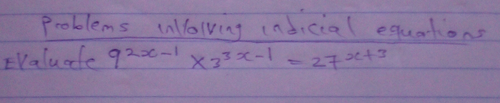 Problems involving indicial equations
Evaluate 9^{2x-1} × 3^{3x-1} = 27^{x+3}